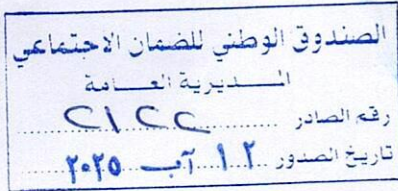 الصندوق الوطني للضمان الاجتماعي
المديرية العامة
رقم الصادر ٢١٢٢
تاريخ الصدور ١٢ آب ٢٠٢٥